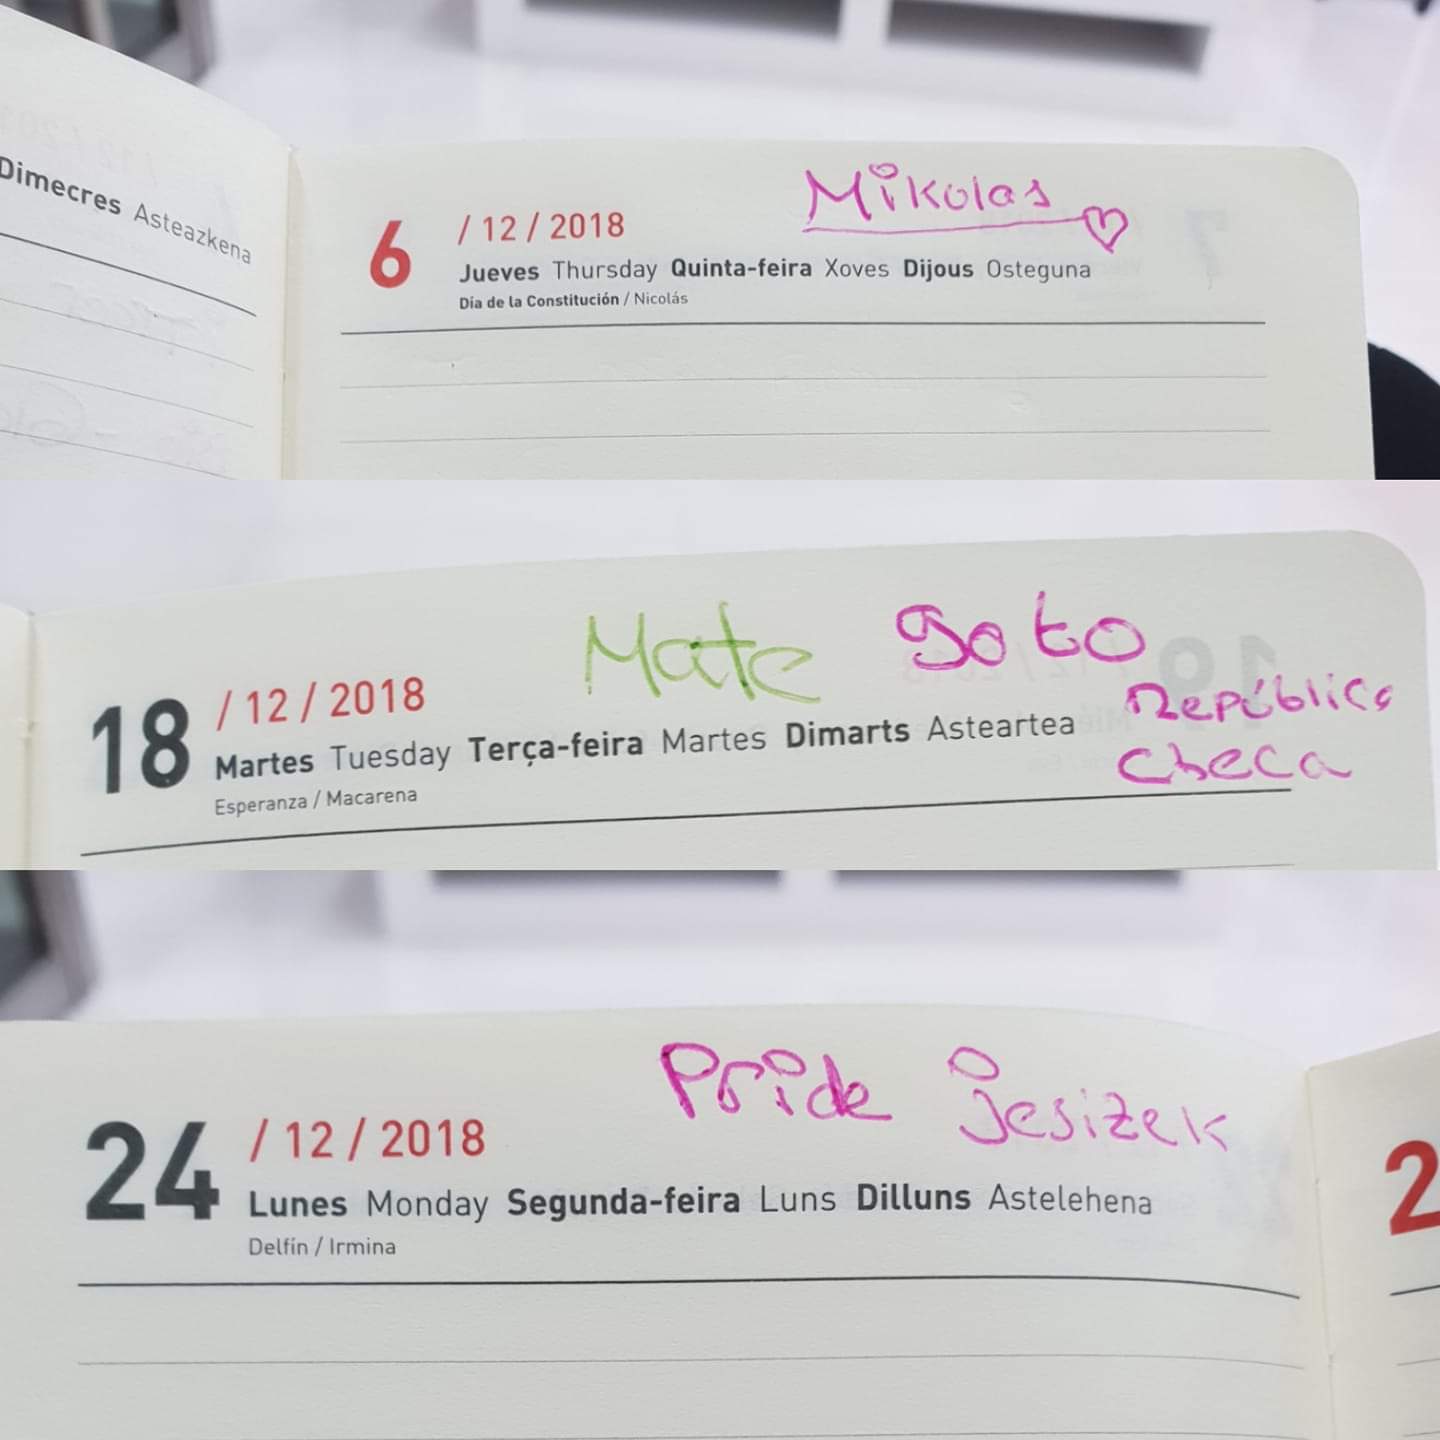 Dimecres Asteazkena
Mikolas
6 / 12 / 2018
Jueves Thursday Quinta-feira Xoves Dijous Osteguna
Día de la Constitución / Nicolás
Mate go to
República
Checa
18 / 12 / 2018
Martes Tuesday Terça-feira Martes Dimarts Asteartea
Esperanza / Macarena
Pride jesizek
24 / 12 / 2018
Lunes Monday Segunda-feira Luns Dilluns Astelehena
Delfín / Irmina
2